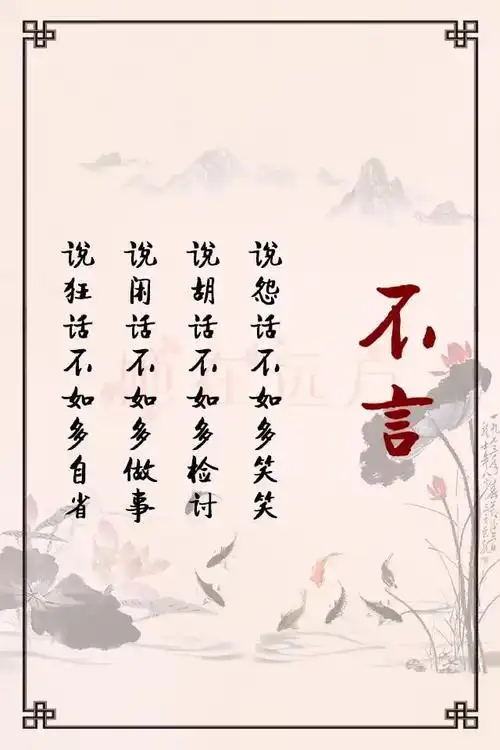 不言
说怨话不如多笑笑
说胡话不如多检讨
说闲话不如多做事
说狂话不如多自省